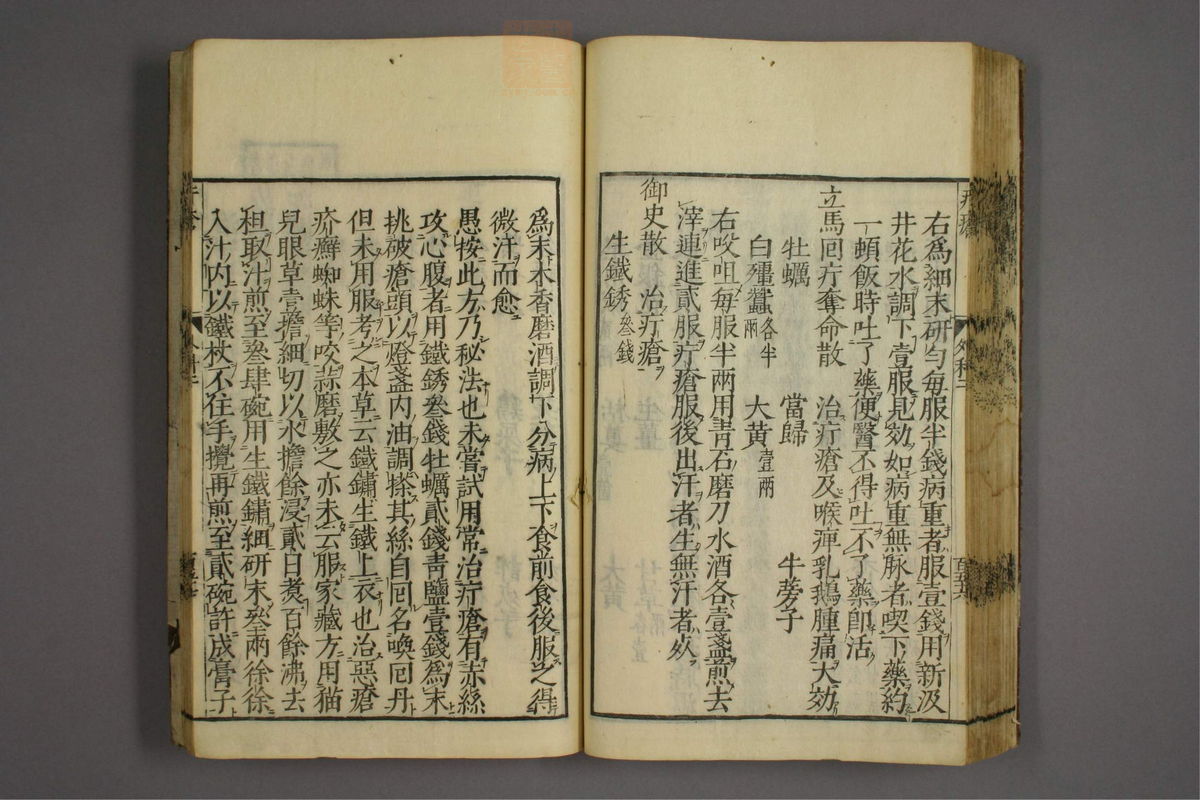 右爲細末研勻每服半錢病重者服壹錢用新汲
井花水調下壹服見效如病重無脉者喫下藥約
一頓飯時吐了藥便醫不得吐不了藥卽活
立馬囘疔奪命散 治疔瘡及喉痺乳鵝腫痛大効
牡蠣 當歸 牛蒡子
白殭蠶各半兩 大黃壹兩
右㕮咀每服半兩用靑石磨刀水酒各壹盞煎去
滓連進貳服疔瘡服後出汗者生無汗者死
御史散 治疔瘡
生鐵銹叄錢
爲末木香磨酒調下分病上下食前食後服之得
微汗而愈
愚按此方乃秘法也未嘗試用常治疔瘡有赤絲
攻心腹者用鐵銹叄錢牡蠣貳錢靑鹽壹錢爲末
挑破瘡頭以燈盞内油調搽其絲自囘名喚囘丹
但未用服考之本草云鐵鏽生鐵上衣也治惡瘡
疥癬蜘蛛等咬蒜磨敷之亦未云服家藏方用猫
兒眼草壹擔細切以水擔餘浸貳日煑百餘沸去
柤取汁煎至叄肆碗用生鐵鏽細研末叄兩徐徐
入汁内以鐵杖不住手攪再煎至貳碗許成膏子